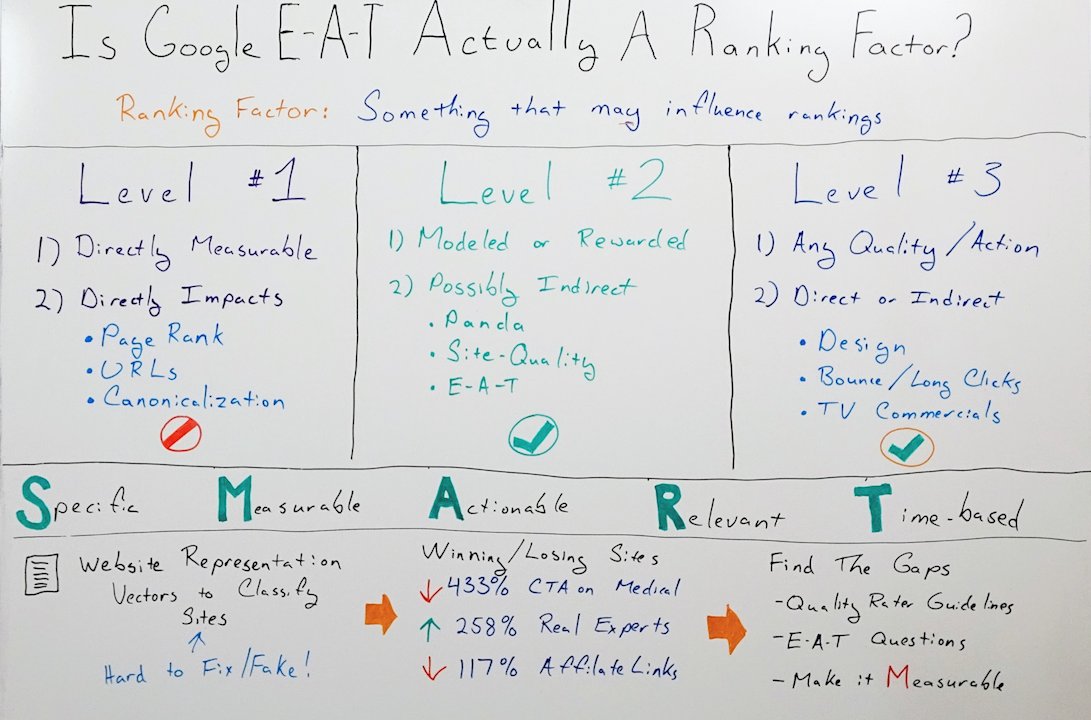 Is Google E-A-T Actually A Ranking Factor?
Ranking Factor: Something that may influence rankings
Level #1
1) Directly Measurable
2) Directly Impacts
• Page Rank
• URLs
• Canonicalization
Level #2
1) Modeled or Rewarded
2) Possibly Indirect
• Panda
• Site-Quality
• E-A-T
Level #3
1) Any Quality/Action
2) Direct or Indirect
• Design
• Bounce/Long Clicks
• TV Commercials
Specific Measurable Actionable Relevant Time-based
Website Representation
Vectors to Classify
Sites
Hard to Fix/Fake!
Winning/Losing Sites
↓ 433% CTA on Medical
↑ 258% Real Experts
↓ 117% Affilate Links
Find The Gaps
- Quality Rater Guidelines
- E-A-T Questions
- Make it Measurable